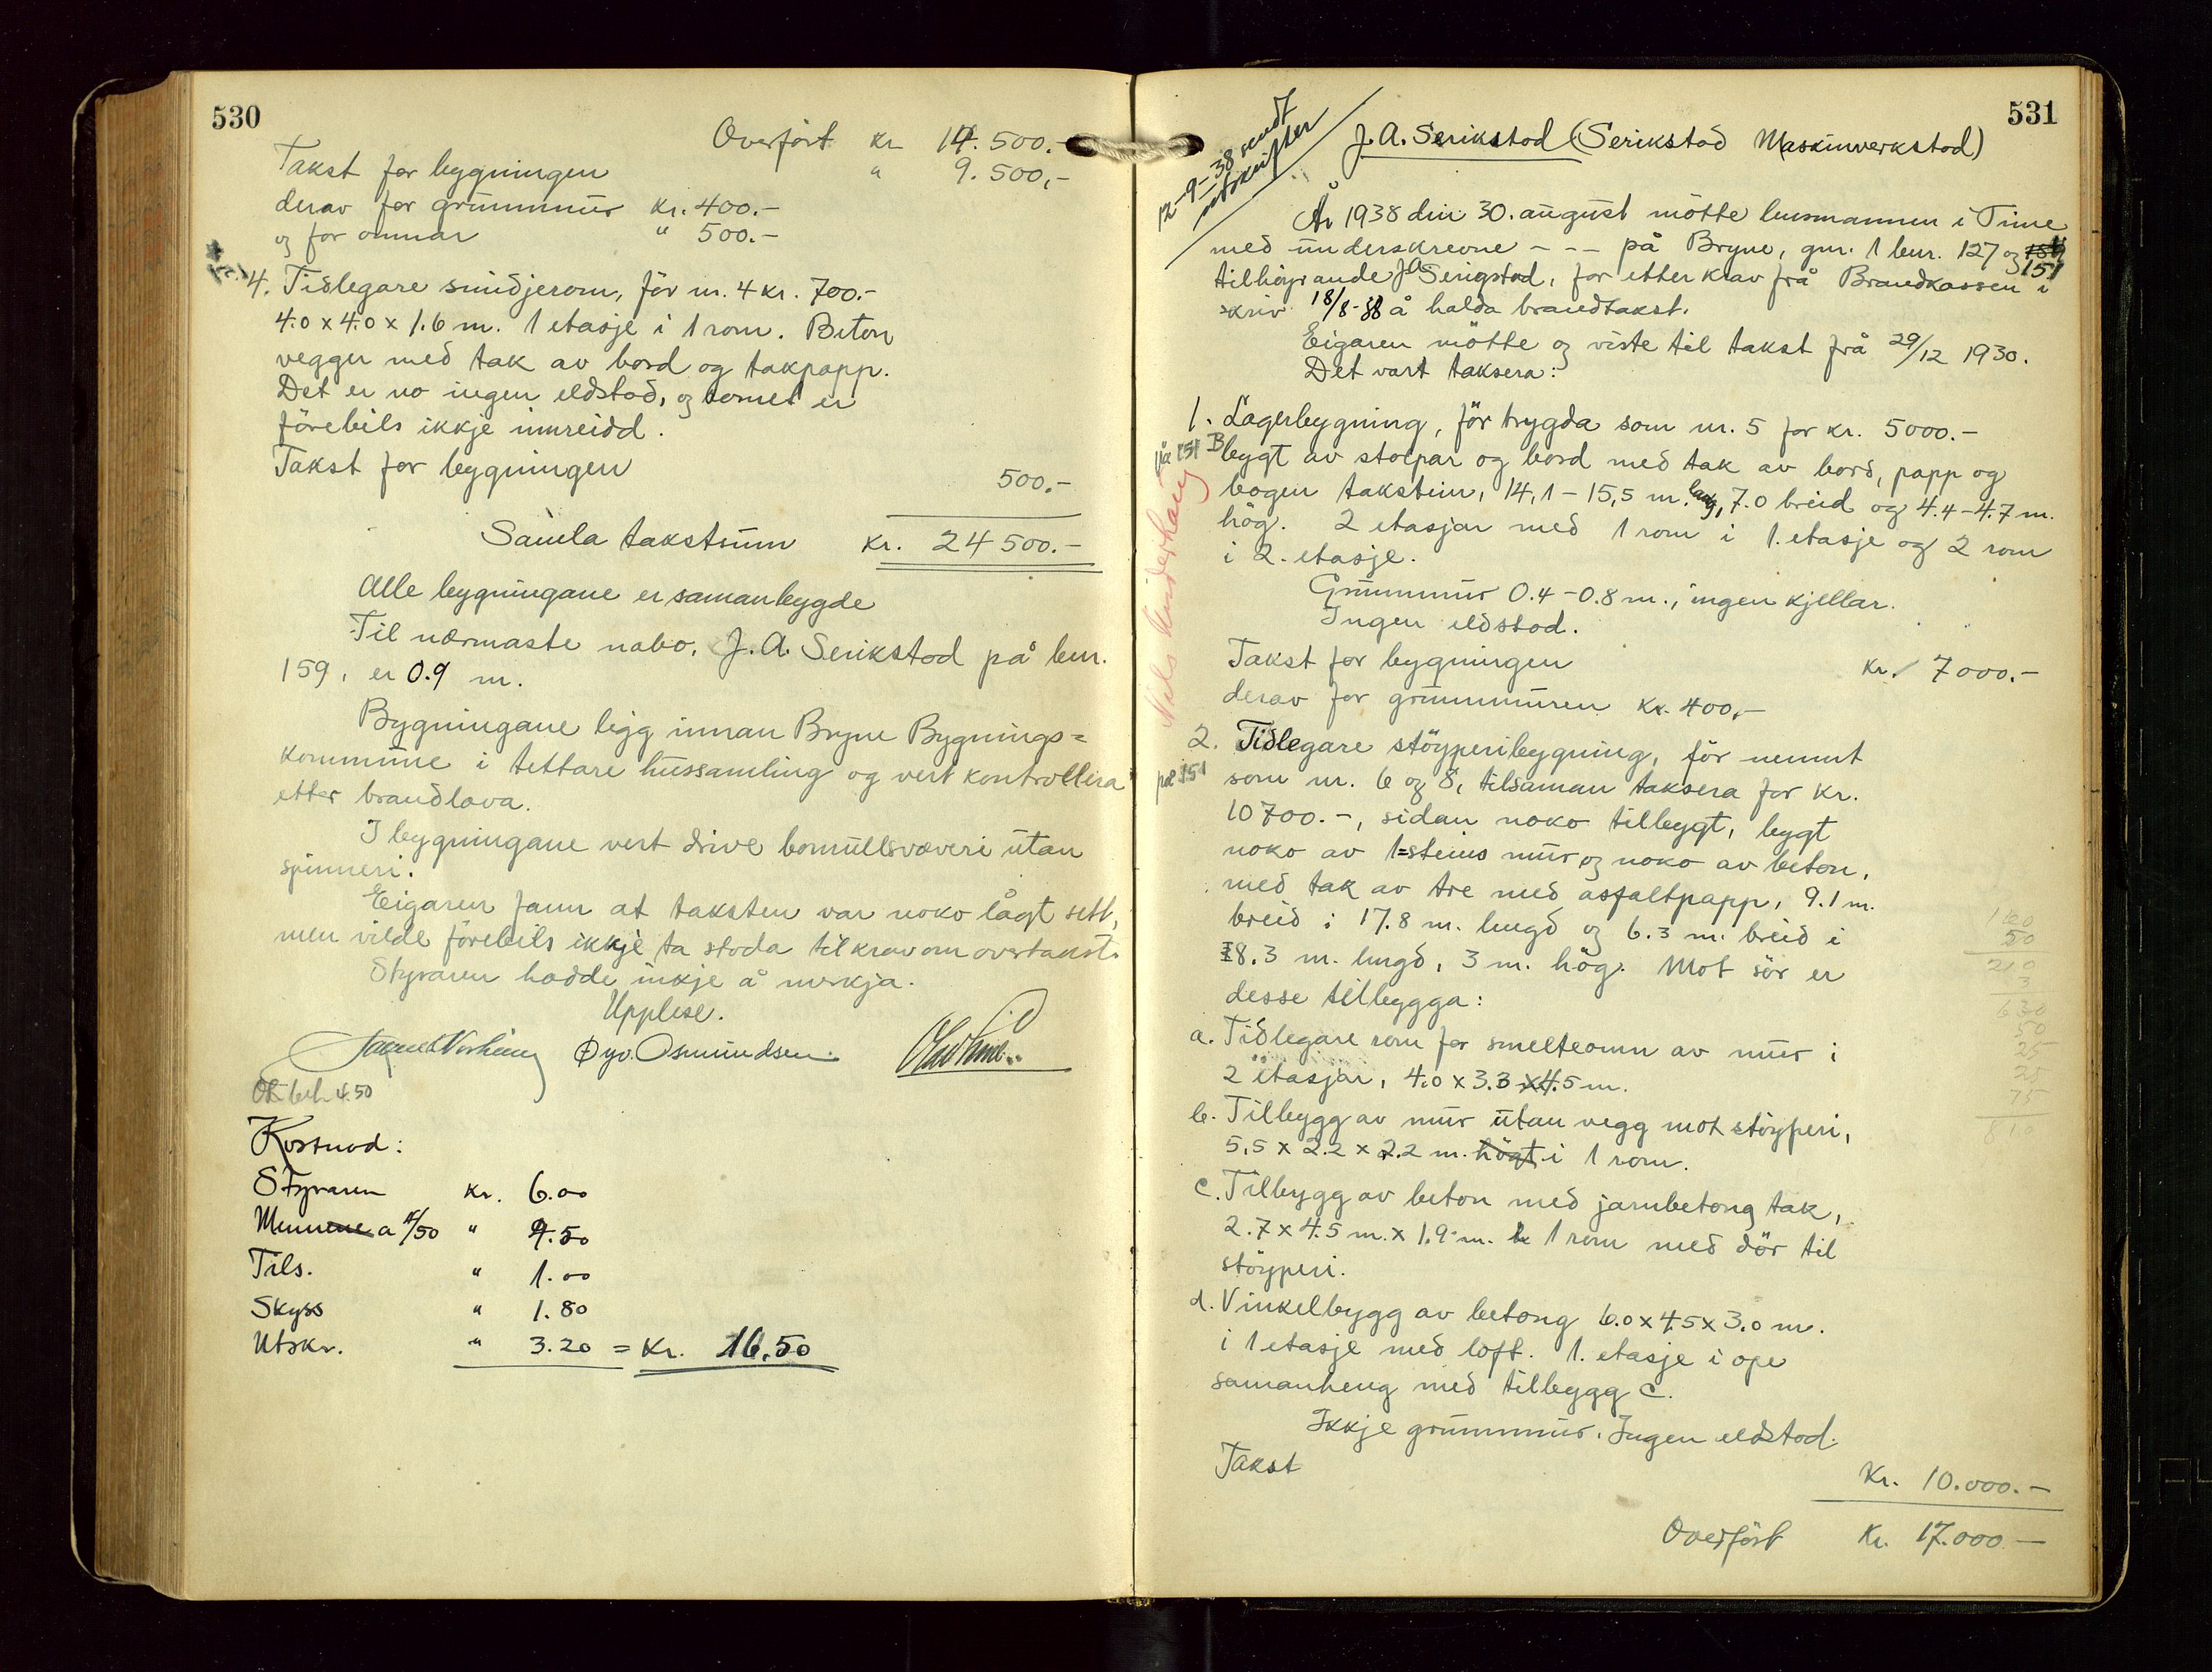 530
Overført kr 14.500.-
Takst for bygningen " 9.500,-
derav for grunnmur kr. 400.-
og for omnar " 500.-
4. Tidlegare smidjerom, för nr. 4 kr. 700.-
4.0 x 4.0 x 1.6 m. 1 etasje i 1 rom. Beton
vegger med tak av bord og takpapp.
Det er no ingen eldstad, og romet er
förebils ikkje innreidd.
Takst for bygningen 500.-
Samla takstsum kr. 24500.-
Alle bygningane er samanbygde
Til nærmaste nabo, J. A. Serikstad på bnr.
159, er 0.9 m.
Bygningane ligg innan Bryne Bygnings=
kommune i tettare hussamling og vert kontrollera
etter brandlova.
I bygningane vert drive bomullsvæveri utan
spinneri.
Eigaren fann at taksten var noko lågt sett,
men vilde förebils ikkje ta stoda til krav om overtakst.
Styraren hadde inkje å merkja.
Upplese.
Øyv. Osmundsen
4.50
Kostnad:
Styraren kr. 6.00
Mennene a 4/50 " 4.50
Tils. " 1.00
Skyss " 1.80
Utskr. " 3.20 = Kr. 16.50
531
12-9-38 sendt
utskrifter
J. A. Serikstad (Serikstad Maskinverkstad)
År 1938 din 30. august mötte lensmannen i Time
med underskrevne - - - på Bryne, gnr. 1 bnr. 127 og 159
151
tilhöyrande J A Serigstad, for etter krav frå Brandkassen i
skriv 18/8-38 å halda brandtakst.
Eigaren mötte og viste til takst frå 29/12 1930.
Det vart taksera:
1. Lagerbygning, för trygda som nr. 5 for kr. 5000.-
på 151 B
bygt av stolpar og bord med tak av bord, papp og
bogen takstein, 14,1 - 15,5 m. lang, 7.0 breid og 4.4-4.7 m.
hög. 2 etasjar med 1 rom i 1. etasje og 2 rom
i 2. etasje.
Grunnmur 0.4-0.8 m., ingen kjellar.
Ingen eldstad.
Takst for bygningen kr. 7000.-
derav for grunnmuren kr. 400,-
2. Tidlegare stöyperibygning, för nemnt
på 151
som nr. 6 og 8, tilsaman taksera for kr.
10700.-, sidan noko tilbygt, bygt
noko av 1=steins mur og noko av beton,
med tak av tre med asfaltpapp, 9.1 m.
breid i 17.8 m. lengd og 6.3 m. breid i
8.3 m. lengd, 3 m. hög. Mot sör er
desse tilbygga:
a. Tidlegare rom for smelteomn av mur i
2 etasjar, 4.0 x 3.3 x 4.5 m.
b. Tilbygg av mur utan vegg mot stöyperi,
5,5 x 2.2 x 2.2 m. högt i 1 rom.
c. Tilbygg av beton med jarnbetong tak,
2.7 x 4.5 m. x 1.9 m. 1 rom med dör til
stöyperi.
d. Vinkelbygg av betong 6.0 x 4.5 x 3.0 m.
i 1 etasje med loft. 1. etasje i ope
samanheng med tilbygg c.
Ikkje grunnmur. Ingen eldstad.
Takst Kr. 10.000.-
Overfört Kr. 17.000.-
50
210
3
630
50
25
25
75